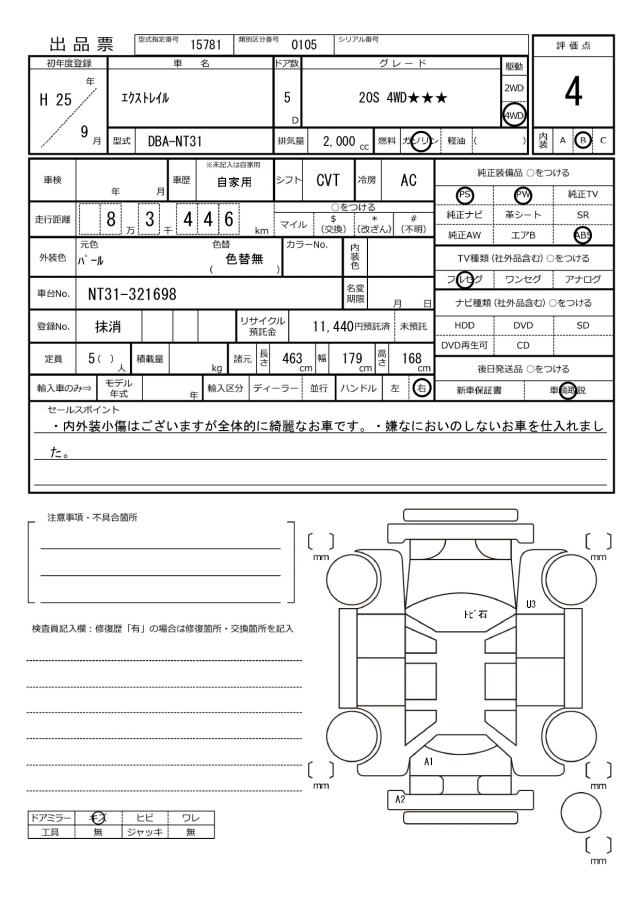 出品票 型式指定番号 15781 類別区分番号 0105 シリアル番号
評価点
4
内装 A B C
初年度登録 車 名 ドア数 グレード 駆動
H 25 年 9 月 エクストレイル 5 D 20S 4WD★★★ 2WD 4WD
型式 DBA-NT31 排気量 2,000 cc 燃料 ガソリン 軽油 ( )
車検 年 月 車歴 ※未記入は自家用 自家用 シフト CVT 冷房 AC
走行距離 8 万 3 千 4 4 6 km ○をつける マイル $ (交換) * (改ざん) # (不明)
外装色 元色 パール 色替 ( 色替無 ) カラーNo. 内装色
車台No. NT31-321698 名変期限 月 日
登録No. 抹消 リサイクル預託金 11,440円預託済 未預託
定員 5 ( ) 人 積載量 kg 諸元 長さ 463 cm 幅 179 cm 高さ 168 cm
輸入車のみ⇒ モデル年式 年 輸入区分 ディーラー 並行 ハンドル 左 右
純正装備品 ○をつける
PS PW 純正TV
純正ナビ 革シート SR
純正AW エアB ABS
TV種類 (社外品含む) ○をつける
フルセグ ワンセグ アナログ
ナビ種類 (社外品含む) ○をつける
HDD DVD SD
DVD再生可 CD
後日発送品 ○をつける
新車保証書 車輌取説
セールスポイント
・内外装小傷はございますが全体的に綺麗なお車です。・嫌なにおいのしないお車を仕入れまし
た。
注意事項・不具合箇所
検査員記入欄：修復歴「有」の場合は修復箇所・交換箇所を記入
ドアミラー キズ ヒビ ワレ
工具 無 ジャッキ 無
〔 〕 mm
〔 〕 mm
トビ石
U3
A1
A2
〔 〕 mm
〔 〕 mm
〔 〕 mm